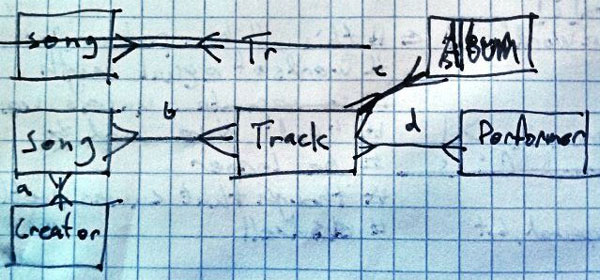 Song Tr
Album
c
b
d
Song Track Performer
a
Creator